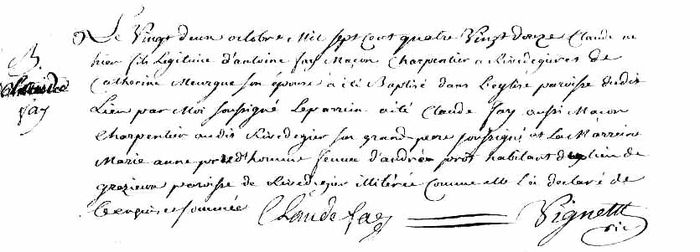 B.
Claude
fay
Le Vingt deux octobre Mil sept Cent quatre Vingt douze Claude né
hier fils Legitime d'antoine fay Maçon Charpentier a de
Catherine Meurque son epouse a été Baptisé dans l'eglise paroisse dudit
Lieu par Moi soussigné Le parrain a été Claude fay aussi Maçon
Charpentier audit son grand-pere soussigné et La Marreine
Marie anne femme d'andré prot habitant du lieu de
paroisse de illiterée Comme elle l'a declaré de
Ce requise et sommée Claude fay Vignett
vic